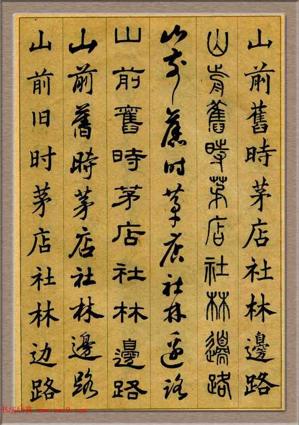 山前舊時茅店社林邊路
山前舊時茅店社林邊路
山前舊時茅店社林邊路
山前舊時茅店社林邊路
山前舊時茅店社林邊路
山前旧时茅店社林边路